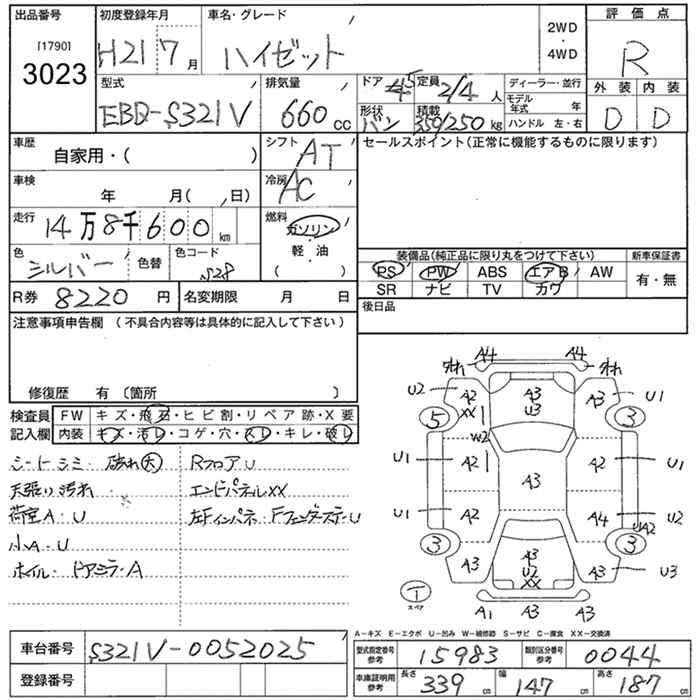 出品番号
[1790]
3023
初度登録年月
H21 7 月
車名・グレード
ハイゼット
2WD
・
4WD
評価点
R
型式
EBD-S321V
排気量
660 cc
ドア 45
定員 2/4 人
形状 バン
積載 350/250 kg
ディーラー・並行
モデル年式 年
ハンドル 左・右
外装 内装
D D
車歴
自家用・( )
シフト AT
セールスポイント(正常に機能するものに限ります)
車検
年 月( , 日)
冷房 AC
走行
14万8千600 km
燃料
ガソリン
軽・油
( )
色
シルバー
色替
色コード
S28
装備品(純正品に限り丸をつけて下さい)
新車保証書
PS PW ABS エアB AW
SR ナビ TV カワ
有・無
R券 8220 円
名変期限 月 日
後日品
注意事項申告欄 (不具合内容等は具体的に記入して下さい)
修復歴 有〔箇所 〕
検査員記入欄
FW キズ・飛石・ヒビ割・リペア跡・X要
内装 キズ・汚レ・コゲ・穴・スレ・キレ・破レ
シートシミ・破れ大 RフロアU
天張り汚れ エンドパネルXX
荷室A・U 左Fインパネ・FフェンダーステーU
小A・U
ホイル・ドアミラ・A
A4 A4
U2 A2 XX A3 U3 A3 U1
5 3
W2
U1 A2 A3 A2 U1
U1 A2 A4 U1
UA2
3 3
A3 A3 U2 XX A3 U3
1
スペア
A1 A3 A3
A-キズ E-エクボ U-凹み W-補修跡 S-サビ C-腐食 XX-交換済
車台番号 S321V-0052025
型式指定番号 参考 15983
類別区分番号 参考 0044
登録番号
車庫証明用 参考
長さ 339 cm
幅 147 cm
高さ 187 cm